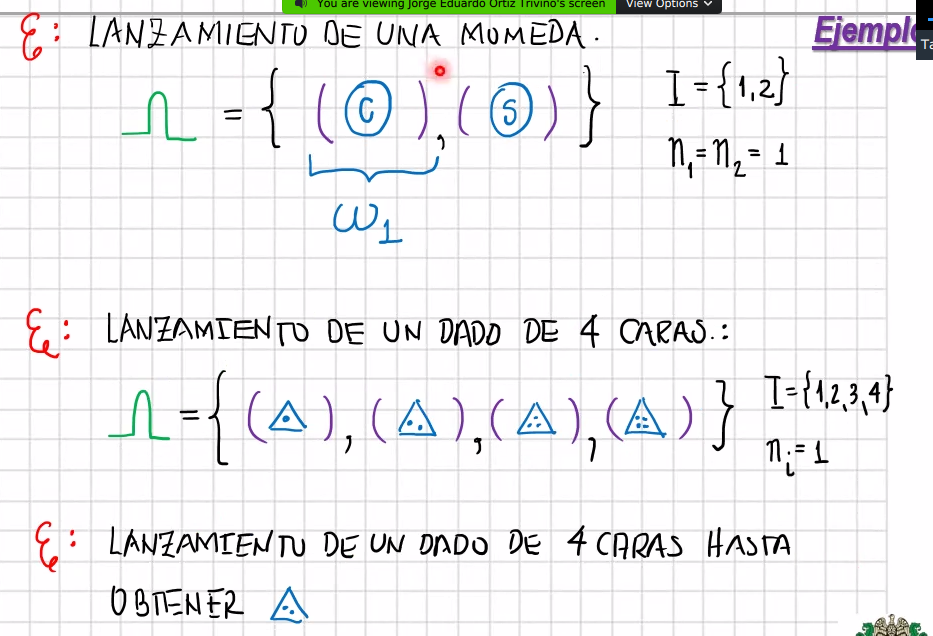 You are viewing Jorge Eduardo Ortiz Trivino's screen View Options
Ejemplo
Ta
ℰ: LANZAMIENTO DE UNA MOMEDA.
Ω = { ( C ), ( S ) } I = {1,2}
n₁ = n₂ = 1
ω₁
ℰ: LANZAMIENTO DE UN DADO DE 4 CARAS.:
Ω = { ( ), ( ), ( ), ( ) } I = {1,2,3,4}
nᵢ = 1
ℰ: LANZAMIENTO DE UN DADO DE 4 CARAS HASTA
OBTENER